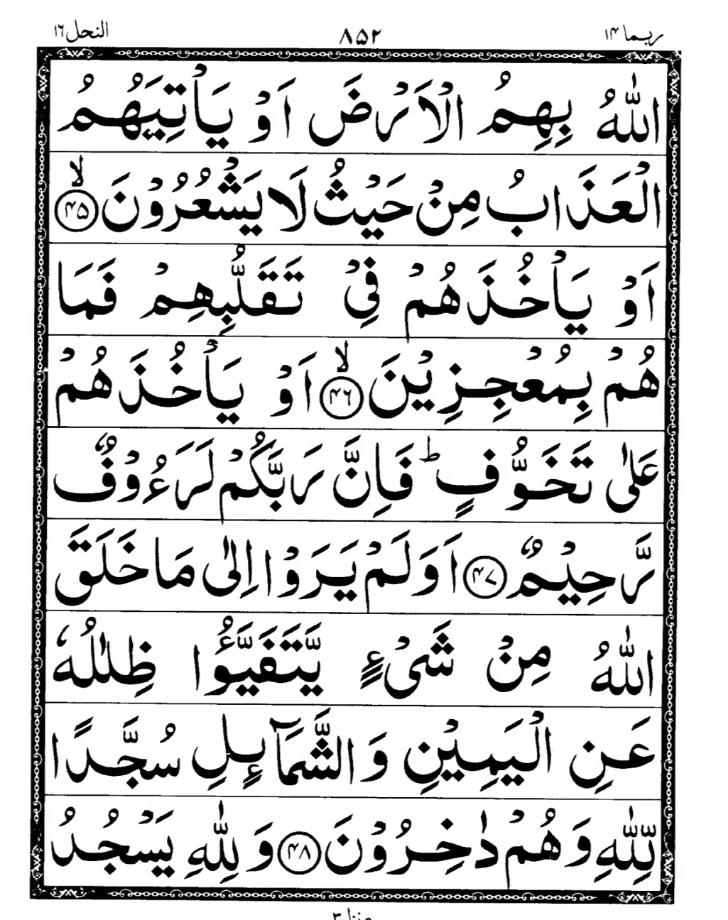 ربما ١٤ ٨٥٢ النحل ١٦
اللّٰهُ بِهِمُ الْاَرْضَ اَوْ يَاْتِيَهُمُ
الْعَذَابُ مِنْ حَيْثُ لَا يَشْعُرُوْنَ ۙ‏﴿۴۵﴾
اَوْ يَاْخُذَهُمْ فِيْ تَقَلُّبِهِمْ فَمَا
هُمْ بِمُعْجِزِيْنَ ۙ‏﴿۴۶﴾ اَوْ يَاْخُذَهُمْ
عَلٰى تَخَوُّفٍ ؕ فَاِنَّ رَبَّكُمْ لَرَءُوْفٌ
رَّحِيْمٌ ﴿۴۷﴾ اَوَلَمْ يَرَوْا اِلٰى مَا خَلَقَ
اللّٰهُ مِنْ شَيْءٍ يَّتَفَيَّؤُا ظِلٰلُهٗ
عَنِ الْيَمِيْنِ وَالشَّمَآئِلِ سُجَّدًا
لِّلّٰهِ وَهُمْ دٰخِرُوْنَ ﴿۴۸﴾ وَلِلّٰهِ يَسْجُدُ
منزل ٣